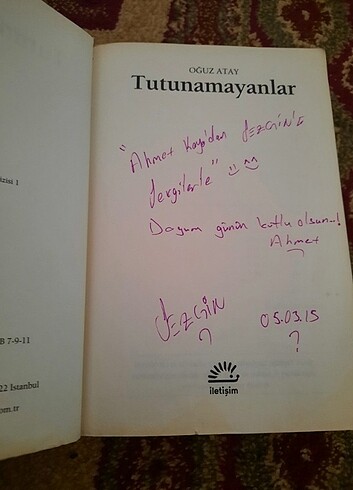 OĞUZ ATAY
Tutunamayanlar
"Ahmet Kaya'dan SEZGİN'E
Sevgilerle"
Doğum günün kutlu olsun!
Ahmet
SEZGİN
05.03.15
iletişim
zisi 1
B 7-9-11
22 İstanbul
om.tr